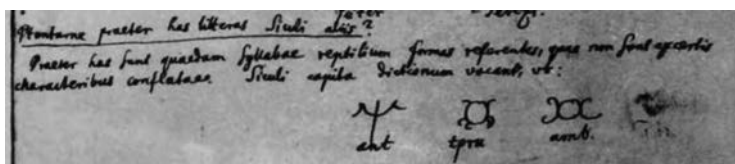 Utunturne praeter has litteras Siculi aliis?
Praeter has sunt quaedam syllabae reptilium formas referentes, quae non sunt ex certis
characteribus conflatae. Siculi capita dictionum vocant, vt:
ant tpru amb.